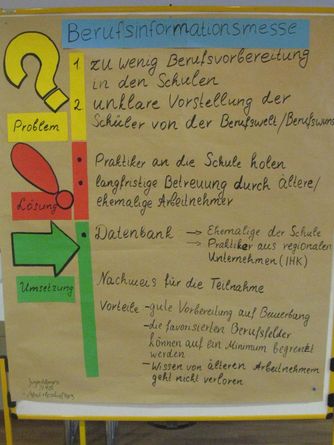 Berufsinformationsmesse
1. zu wenig Berufsvorbereitung
in den Schulen
2. unklare Vorstellung der
Schüler von der Berufswelt/Berufswuns
Problem
• Praktiker an die Schule holen
• langfristige Betreuung durch ältere/
ehemalige Arbeitnehmer
Lösung
• Datenbank → Ehemalige der Schule
→ Praktiker aus regionalen
Unternehmen (IHK)
Umsetzung
Nachweis für die Teilnahme
Vorteile - gute Vorbereitung auf Bewerbung
- die favorisierten Berufsfelder
können auf ein Minimum begrenzt
werden
- Wissen von älteren Arbeitnehmern
geht nicht verloren